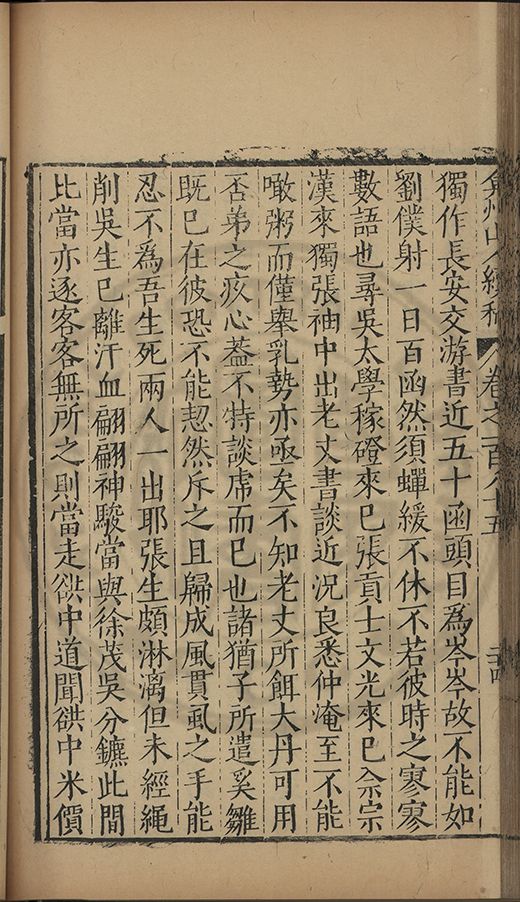 弇州山人續稿 卷之一百八十五 二十四
獨作長安交游書近五十函頭目為岑岑故不能如
劉僕射一日百函然須蟬緩不休不若彼時之寥寥
數語也尋吳太學稼䃮來已張貢士文光來已佘宗
漢來獨張袖中出老丈書談近況良悉仲淹至不能
噉粥而僅舉乳勢亦亟矣不知老丈所餌大丹可用
否弟之疚心葢不特談席而已也諸猶子所遣奚雛
既已在彼恐不能恝然斥之且歸成風貫虱之手能
忍不為吾生死兩人一出耶張生頗淋漓但未經繩
削吳生已離汗血翩翩神駿當與徐茂吳分鑣此間
比當亦逐客客無所之則當走歙中道聞歙中米價